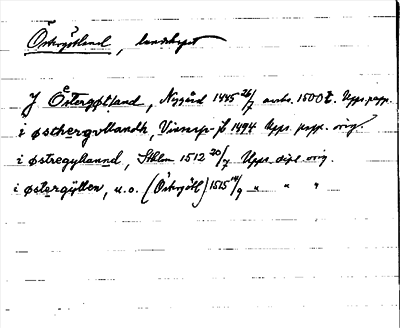 Östergötland, landskapet
J Östergøtland, Nygård 1445 26/7 avskr. 1500 t. Upps. papp.
i østhergotlandh, 1494 Upps. papp. orig.
i østregyllannd, Sthlm 1512 20/7 Upps. dipl. orig.
i østergÿllen, u.o. (Östergötl) 1515 14/9 " " "